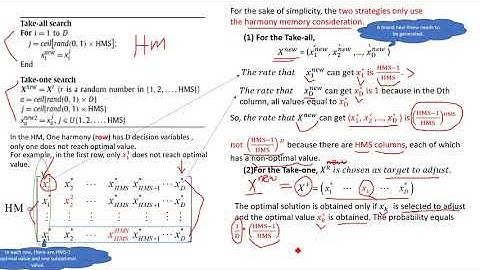 Take-all search
For i = 1 to D
j = ceil[rand(0, 1) × HMS];
x_i^new = x_i^j
End
Take-one search
X^new = X^r (r is a random number in {1, 2, . . . . HMS})
c = ceil[rand(0, 1) × D]
j = ceil[rand(0, 1) × HMS]
Hm
In the HM, One harmony (row) has D decision variables ,
only one does not reach optimal value.
For example, in the first row, only x_1^1 does not reach optimal
value.
HM
In each row, there are HMS-1
optimal value and one suboptimal
value.
For the sake of simplicity, the two strategies only use
the harmony memory consideration.
A brand new Xnew needs to
be generated.
(1) For the Take-all,
X^new = (x_1^new, x_2^new, ⋯, x_D^new)
The rate that x_1^new can get x_1^* is (HMS−1)/HMS
The rate that x_D^new can get x_D^* is 1 because in the Dth
column, all values equal to x_D^*
So, the rate that X^new can get (x_1^*, x_2^*, ⋯, x_D^*) is ((HMS−1)/HMS)^HMS
not ((HMS−1)/HMS)^D because there are HMS columns, each of which
has a non-optimal value.
(2)For the Take-one, X^R is chosen as target to adjust.
new
The optimal solution is obtained only if x_k is selected to adjust
and the optimal value x_k^* is obtained. The probability equals
1/D · ((HMS−1)/HMS)